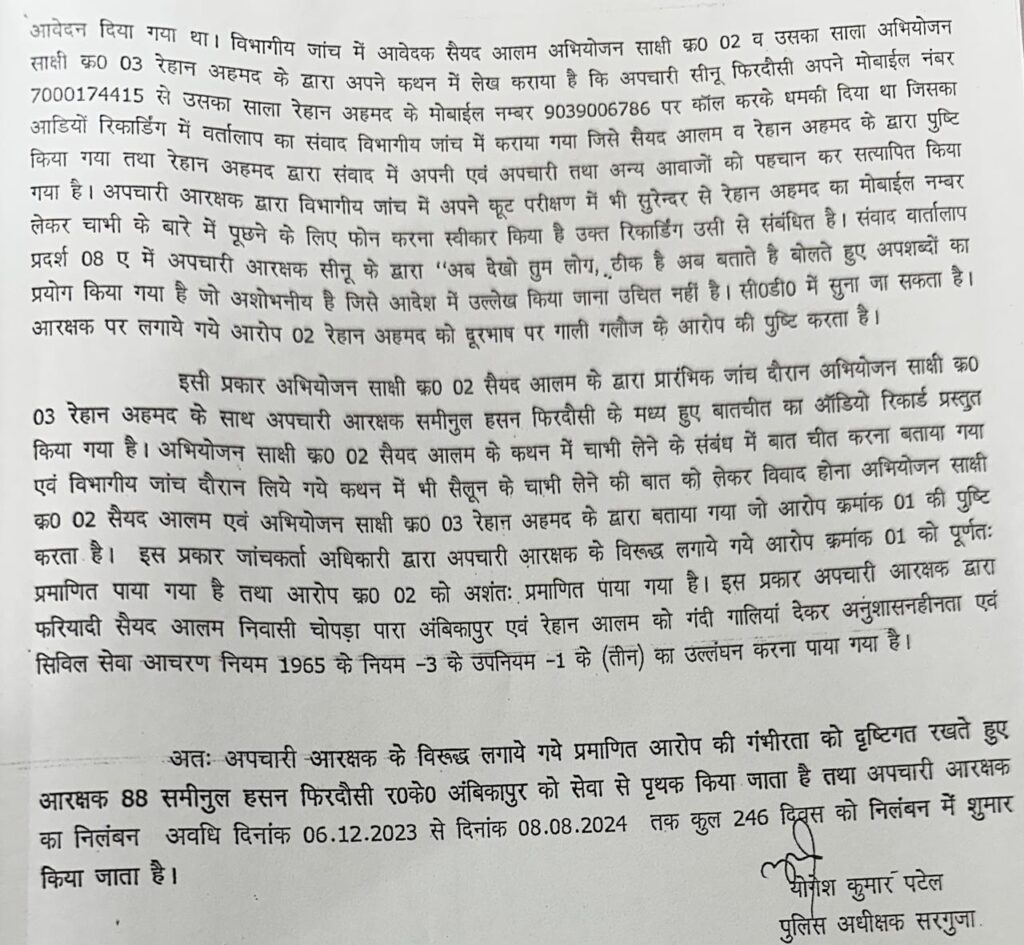 आवेदन दिया गया था। विभागीय जांच में आवेदक सैयद आलम अभियोजन साक्षी क्र0 02 व उसका साला अभियोजन
साक्षी क्र0 03 रेहान अहमद के द्वारा अपने कथन में लेख कराया है कि अपचारी सीनू फिरदौसी अपने मोबाईल नंबर
7000174415 से उसका साला रेहान अहमद के मोबाईल नम्बर 9039006786 पर कॉल करके धमकी दिया था जिसका
आडियों रिकार्डिंग में वर्तालाप का संवाद विभागीय जांच में कराया गया जिसे सैयद आलम व रेहान अहमद के द्वारा पुष्टि
किया गया तथा रेहान अहमद द्वारा संवाद में अपनी एवं अपचारी तथा अन्य आवाजों को पहचान कर सत्यापित किया
गया है। अपचारी आरक्षक द्वारा विभागीय जांच में अपने कूट परीक्षण में भी सुरेन्दर से रेहान अहमद का मोबाईल नम्बर
लेकर चाभी के बारे में पूछने के लिए फोन करना स्वीकार किया है उक्त रिकार्डिंग उसी से संबंधित है। संवाद वार्तालाप
प्रदर्श 08 ए में अपचारी आरक्षक सीनू के द्वारा "अब देखो तुम लोग, ठीक है अब बताते है बोलते हुए अपशब्दों का
प्रयोग किया गया है जो अशोभनीय है जिसे आदेश में उल्लेख किया जाना उचित नहीं है। सी0डी0 में सुना जा सकता है।
आरक्षक पर लगाये गये आरोप 02 रेहान अहमद को दूरभाष पर गाली गलौज के आरोप की पुष्टि करता है।
इसी प्रकार अभियोजन साक्षी क्र0 02 सैयद आलम के द्वारा प्रारंभिक जांच दौरान अभियोजन साक्षी क्र0
03 रेहान अहमद के साथ अपचारी आरक्षक समीनुल हसन फिरदौसी के मध्य हुए बातचीत का ऑडियो रिकार्ड प्रस्तुत
किया गया है। अभियोजन साक्षी क्र0 02 सैयद आलम के कथन में चाभी लेने के संबंध में बात चीत करना बताया गया
एवं विभागीय जांच दौरान लिये गये कथन में भी सैलून के चाभी लेने की बात को लेकर विवाद होना अभियोजन साक्षी
क्र0 02 सैयद आलम एवं अभियोजन साक्षी क्र0 03 रेहान अहमद के द्वारा बताया गया जो आरोप क्रमांक 01 की पुष्टि
करता है। इस प्रकार जांचकर्ता अधिकारी द्वारा अपचारी आरक्षक के विरूद्ध लगाये गये आरोप क्रमांक 01 को पूर्णतः
प्रमाणित पाया गया है तथा आरोप क्र0 02 को अशंतः प्रमाणित पाया गया है। इस प्रकार अपचारी आरक्षक द्वारा
फरियादी सैयद आलम निवासी चोपड़ा पारा अंबिकापुर एवं रेहान आलम को गंदी गालियां देकर अनुशासनहीनता एवं
सिविल सेवा आचरण नियम 1965 के नियम -3 के उपनियम -1 के (तीन) का उल्लंघन करना पाया गया है।
अतः अपचारी आरक्षक के विरूद्ध लगाये गये प्रमाणित आरोप की गंभीरता को दृष्टिगत रखते हुए
आरक्षक 88 समीनुल हसन फिरदौसी र0के0 अंबिकापुर को सेवा से पृथक किया जाता है तथा अपचारी आरक्षक
का निलंबन अवधि दिनांक 06.12.2023 से दिनांक 08.08.2024 तक कुल 246 दिवस को निलंबन में शुमार
किया जाता है।
योगेश कुमार पटेल
पुलिस अधीक्षक सरगुजा